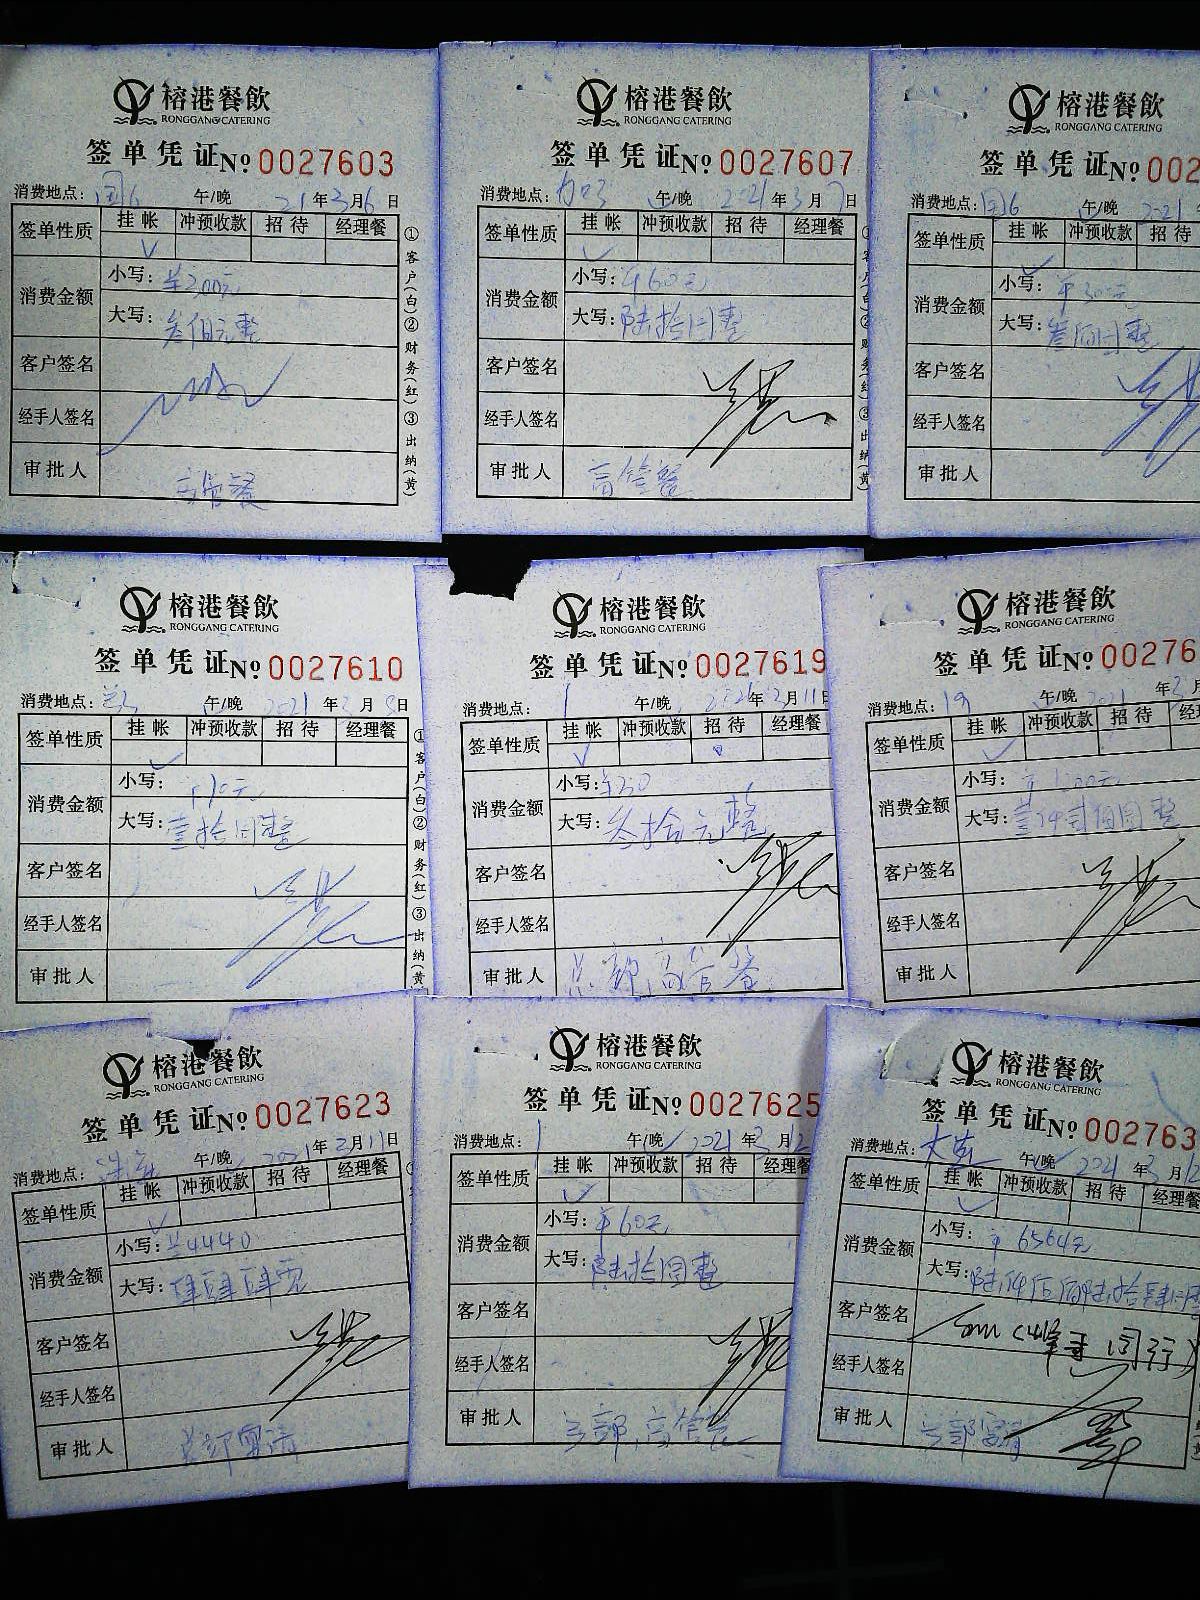 榕港餐飲
RONGGANG CATERING
签单凭证 No 0027603
消费地点: 国6 午/晚 21年3月6日
签单性质 挂帐 冲预收款 招待 经理餐
消费金额 小写: ¥300元
大写: 叁佰元整
客户签名
经手人签名
审批人 高管餐
①客户(白)②财务(红)③出纳(黄)
榕港餐飲
RONGGANG CATERING
签单凭证 No 0027607
消费地点: 午/晚 2021年3月7日
签单性质 挂帐 冲预收款 招待 经理餐
消费金额 小写: ¥60元
大写: 陆拾圆整
客户签名
经手人签名
审批人 高管餐
榕港餐飲
RONGGANG CATERING
签单凭证 No 002
消费地点: 国6 午/晚 2021
签单性质 挂帐 冲预收款 招待
消费金额 小写: ¥300元
大写: 叁佰圆整
客户签名
经手人签名
审批人
榕港餐飲
RONGGANG CATERING
签单凭证 No 0027610
消费地点: 午/晚 2021年3月8日
签单性质 挂帐 冲预收款 招待 经理餐
消费金额 小写: ¥10元
大写: 壹拾圆整
客户签名
经手人签名
审批人
①客户(白)②财务(红)③出纳(黄
榕港餐飲
RONGGANG CATERING
签单凭证 No 0027619
消费地点: 1 午/晚 2021年3月11日
签单性质 挂帐 冲预收款 招待 经理餐
消费金额 小写: ¥30
大写: 叁拾元整
客户签名
经手人签名
审批人 总部高管餐
榕港餐飲
RONGGANG CATERING
签单凭证 No 00276
消费地点: 19 午/晚 2021年3月
签单性质 挂帐 冲预收款 招待 经理
消费金额 小写: ¥1200元
大写: 壹仟贰佰圆整
客户签名
经手人签名
审批人
榕港餐飲
RONGGANG CATERING
签单凭证 No 0027623
消费地点: 午/晚 2021年3月11日
签单性质 挂帐 冲预收款 招待 经理餐
消费金额 小写: ¥4440
大写: 肆肆肆零
客户签名
经手人签名
审批人 总部宴请
榕港餐飲
RONGGANG CATERING
签单凭证 No 0027625
消费地点: 1 午/晚 2021年3月12
签单性质 挂帐 冲预收款 招待 经理餐
消费金额 小写: ¥60元
大写: 陆拾圆整
客户签名
经手人签名
审批人 总部高管餐
榕港餐飲
RONGGANG CATERING
签单凭证 No 002763
消费地点: 午/晚 2021年3月12
签单性质 挂帐 冲预收款 招待 经理餐
消费金额 小写: ¥6564元
大写: 陆仟伍佰陆拾肆圆
客户签名
经手人签名
审批人 总部宴请